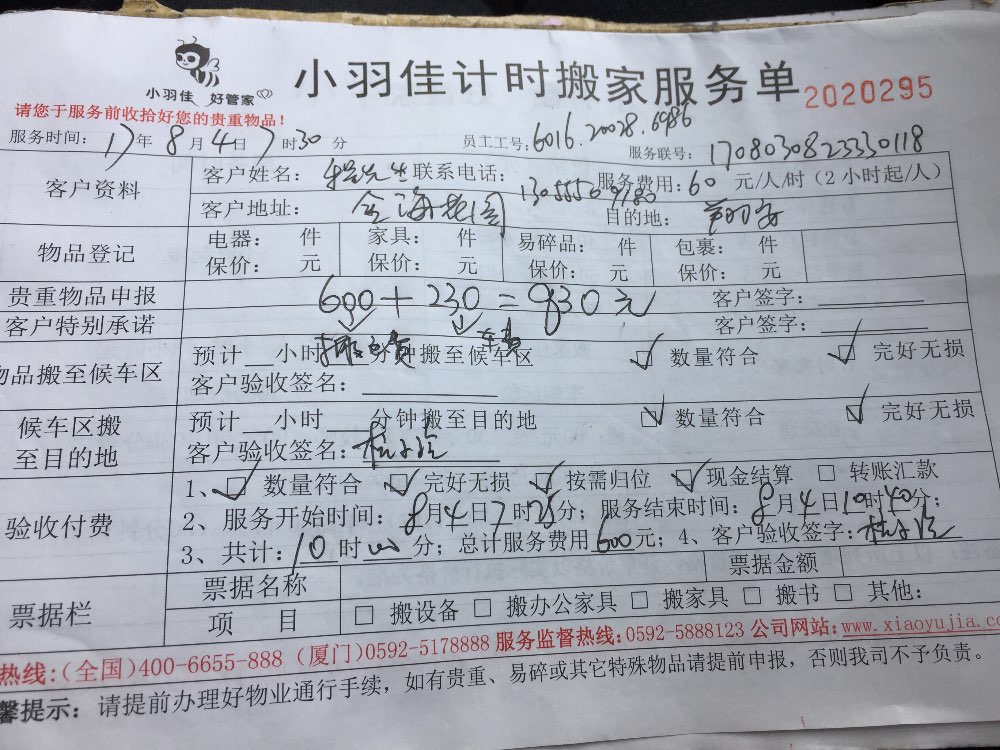 小羽佳 好管家
小羽佳计时搬家服务单 2020295
请您于服务前收拾好您的贵重物品!
服务时间: 17年 8月 4日 7时30分 员工工号: 6016.20028.6986 服务联号: 1708030823330118
客户资料
客户姓名: 先生 联系电话: 服务费用: 60 元/人/时 (2小时起/人)
客户地址: 金海花园 目的地: 翔安
物品登记
电器: 件 家具: 件 易碎品: 件 包裹: 件
保价: 元 保价: 元 保价: 元 保价: 元
贵重物品申报 客户签字:
600+230=830元
客户特别承诺 客户签字:
搬家费 车费
物品搬至候车区
预计 小时 分钟搬至候车区 ☑ 数量符合 ☑ 完好无损
客户验收签名:
候车区搬至目的地
预计 小时 分钟搬至目的地 ☑ 数量符合 ☑ 完好无损
客户验收签名:
验收付费
1、☑ 数量符合 ☑ 完好无损 ☑ 按需归位 ☑ 现金结算 □ 转账汇款
2、服务开始时间: 8月4日7时25分; 服务结束时间: 8月4日10时40分;
3、共计: 10时00分; 总计服务费用600元; 4、客户验收签字:
票据栏
票据名称 票据金额
项 目 □ 搬设备 □ 搬办公家具 □ 搬家具 □ 搬书 □ 其他:
热线:(全国)400-6655-888 (厦门)0592-5178888 服务监督热线:0592-5888123 公司网站:www.xiaoyujia.co
馨提示: 请提前办理好物业通行手续, 如有贵重、易碎或其它特殊物品请提前申报, 否则我司不予负责。